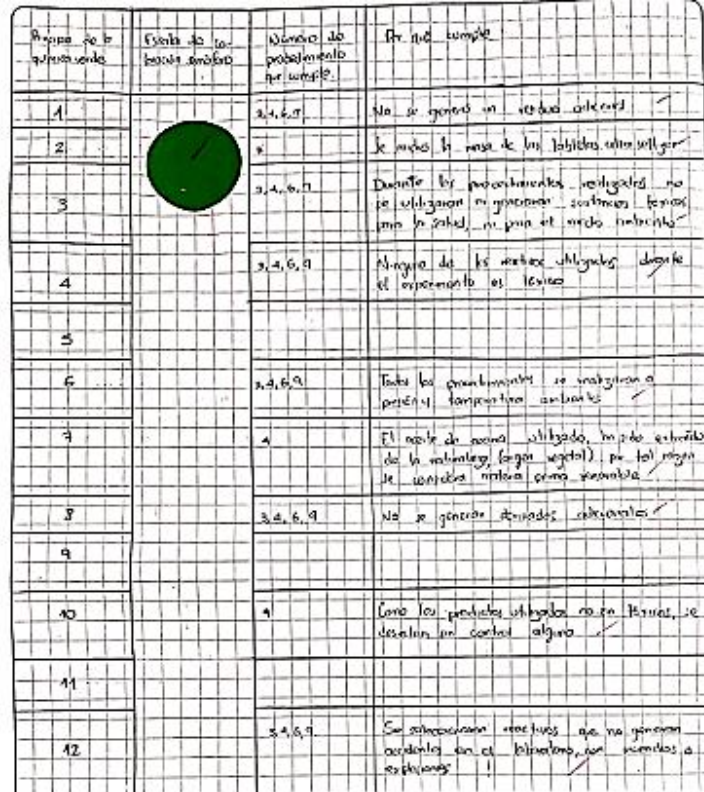 Principio de la
química verde
Escala de co-
semáforo
Número de
procedimiento
que cumple
Por qué cumple
1
No se generó un residuo
2
Se midió la masa de las
3
3, 4, 6, 9
Durante los procedimientos realizados no
se utilizaron ni generaron sustancias tóxicas
para la salud, ni para el medio ambiente
4
3, 4, 6, 9
Ninguno de los utilizados durante
el experimento es tóxico
5
6
3, 4, 6, 9
Todos los procedimientos se realizaron a
presión y temperatura ambiente
7
4
El aceite de cocina utilizado, ha sido extraído
de la naturaleza, (origen vegetal) por tal razón
se considera materia prima renovable
8
3, 4, 6, 9
No se generan derivados
9
10
Como los productos utilizados no son tóxicos, se
desechan sin control alguno
11
12
3, 4, 6, 9
Se seleccionaron reactivos que no generan
accidentes en el laboratorio, incendios o
explosiones